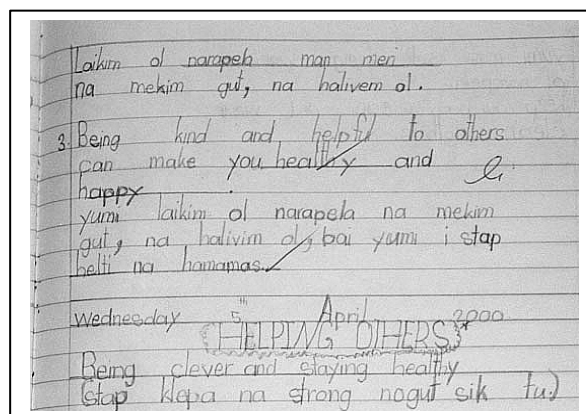 Laikim ol narapela man meri
na mekim gut, na halivem ol.
3. Being kind and helpful to others
can make you healthy and
happy.
yumi laikim ol narapela na mekim
gut, na halivim ol, bai yumi i stap
helti na hamamas.
Wednesday 5th April 2000
HELPING OTHERS
Being clever and staying healthy
(stap klepa na strong nogut sik tu.)